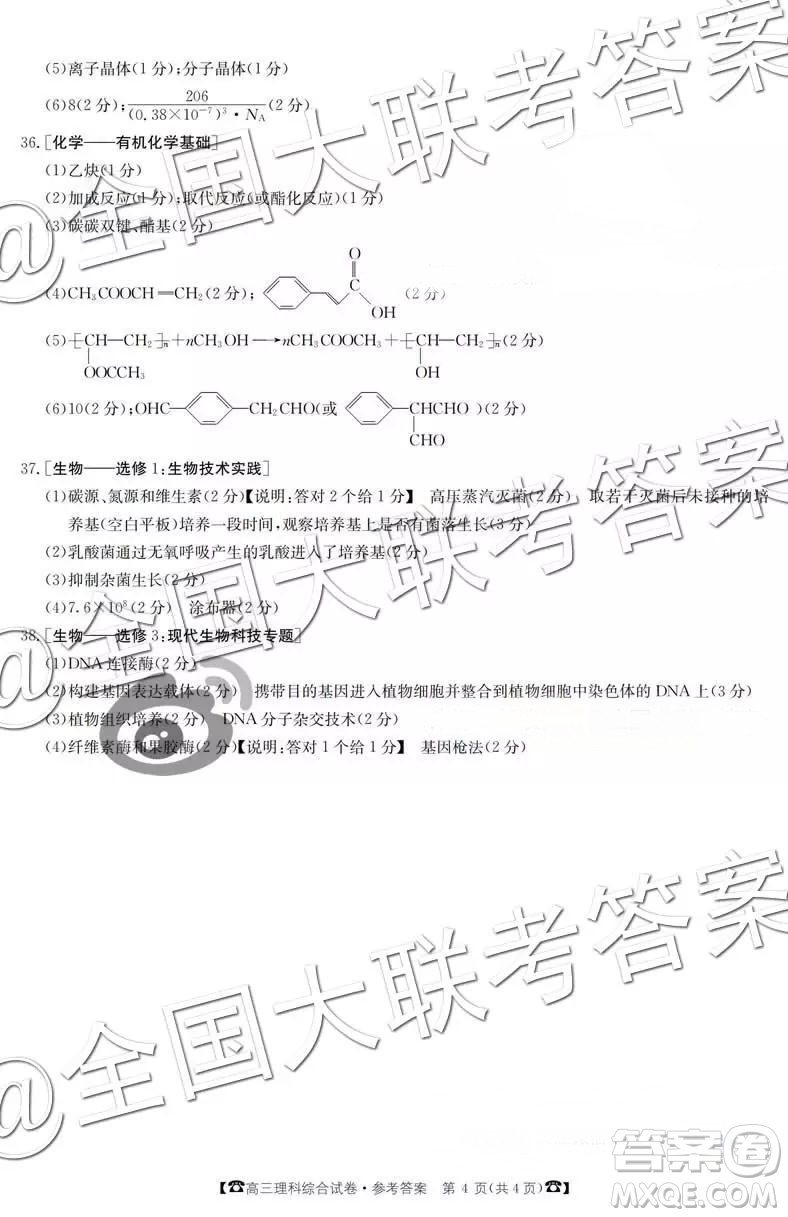 (5)离子晶体(1 分);分子晶体(1 分)
(6)8(2 分);206/(0.38×10⁻⁷)³·N_A(2 分)
36.[化学——有机化学基础]
(1)乙炔(1 分)
(2)加成反应(1 分);取代反应(或酯化反应)(1 分)
(3)碳碳双键、酯基(2 分)
(4)CH₃COOCH=CH₂(2 分); O C OH (2 分)
(5)[CH—CH₂]ₙ+nCH₃OH→nCH₃COOCH₃+[CH—CH₂]ₙ(2 分)
OOCCH₃ OH
(6)10(2 分);OHC—CH₂CHO(或 CHCHO)(2 分)
CHO
37.[生物——选修 1:生物技术实践]
(1)碳源、氮源和维生素(2 分)【说明:答对 2 个给 1 分】 高压蒸汽灭菌(2 分) 取若干灭菌后未接种的培
养基(空白平板)培养一段时间,观察培养基上是否有菌落生长(3 分)
(2)乳酸菌通过无氧呼吸产生的乳酸进入了培养基(2 分)
(3)抑制杂菌生长(2 分)
(4)7.6×10⁸(2 分) 涂布器(2 分)
38.[生物——选修 3:现代生物科技专题]
(1)DNA 连接酶(2 分)
(2)构建基因表达载体(2 分) 携带目的基因进入植物细胞并整合到植物细胞中染色体的 DNA 上(3 分)
(3)植物组织培养(2 分) DNA 分子杂交技术(2 分)
(4)纤维素酶和果胶酶(2 分)【说明:答对 1 个给 1 分】 基因枪法(2 分)
@全国大联考答案
@全国大联考答案
@全国大联考答案
答案卷
MXQE.COM
【☎高三理科综合试卷·参考答案 第 4 页(共 4 页)☎】